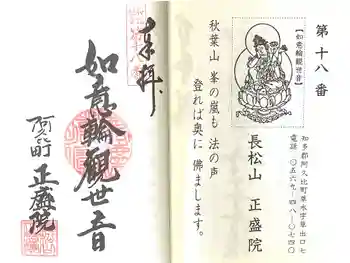 第十八番
【如意輪観世音】
知多郡阿久比町草木字草出口七
電話 〇五六九-四八-〇七四〇
長松山 正盛院
秋葉山 峯の嵐も 法の声
登れば奥に 佛まします。
奉拝
如意輪観世音
阿久比町 正盛院